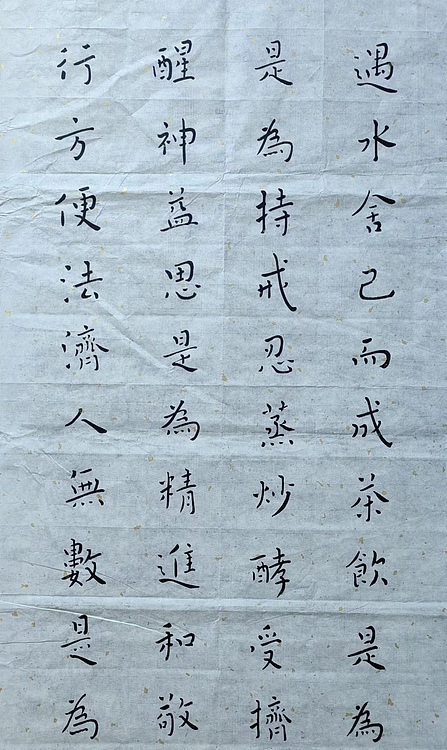 遇水舍己而成茶飲是為
是為持戒忍蒸炒酵受擠
醒神益思是為精進和敬
行方便法濟人無數是為